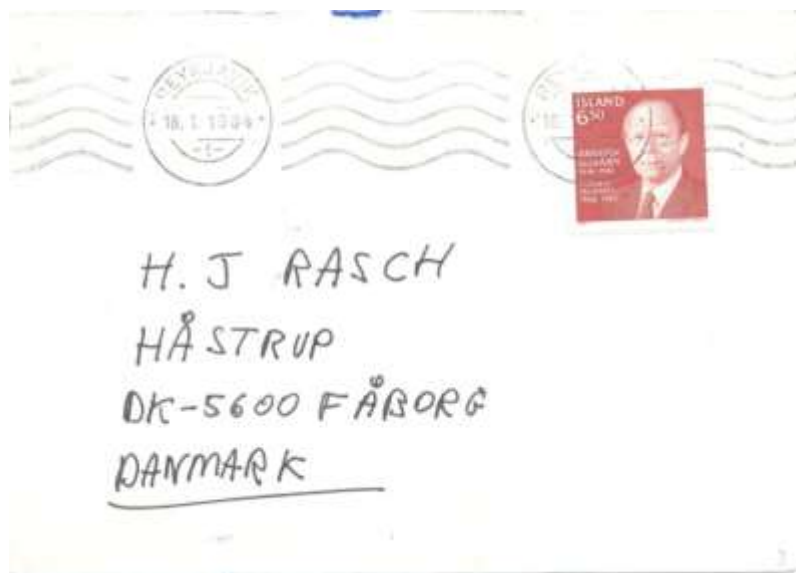 REYKJAVÍK
18. 1. 1984
-t-
ÍSLAND
650
H. J RASCH
HÅSTRUP
DK-5600 FÅBORG
DANMARK